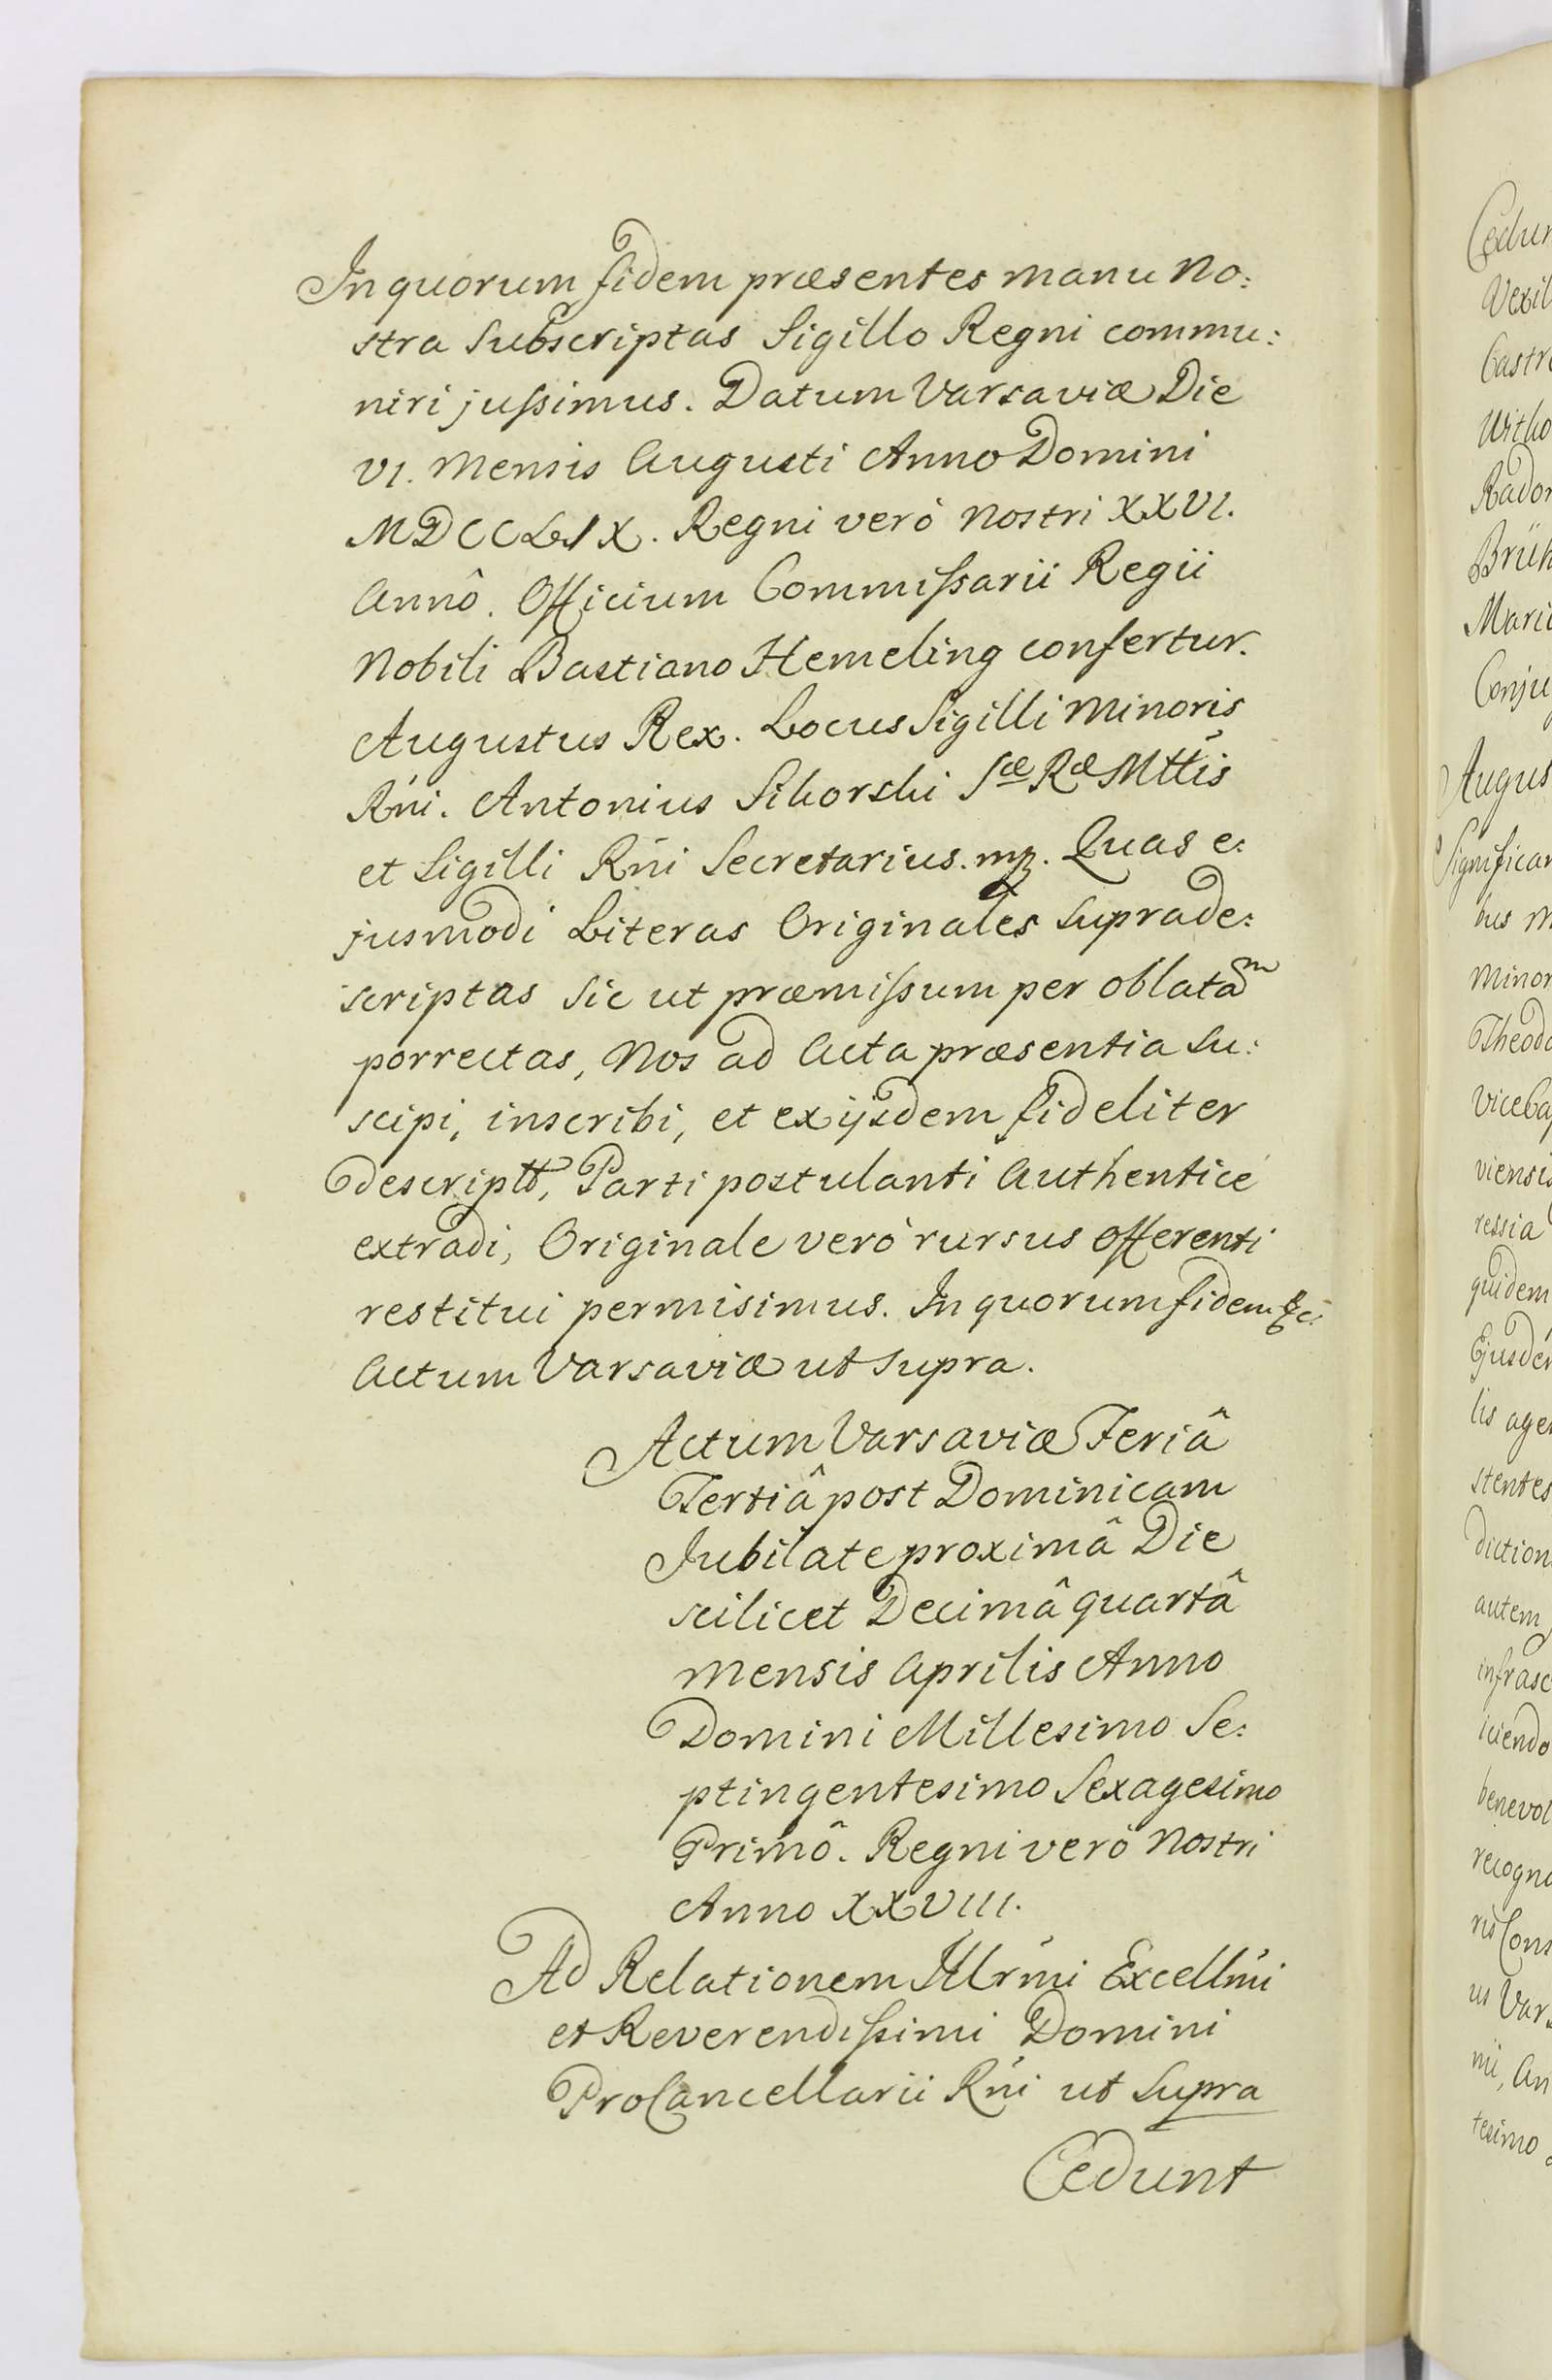 In quorum fidem præsentes manu No:
stra Subscriptas Sigillo Regni commu:
niri jussimus. Datum Varsaviæ Die
VI. Mensis Augusti Anno Domini
MDCCLIX. Regni verò Nostri XXVI.
Annô. Officium Commissarii Regii
Nobili Bastiano Hemeling confertur.
Augustus Rex. Locus Sigilli Minoris
Rńi. Antonius Sikorski Sæ Ræ Mttis
et Sigilli Rńi Secretarius. mp. Quas e:
jusmodi Literas Originales Suprade:
scriptas Sic ut præmissum per oblatam
porrectas, Nos ad Acta præsentia Su:
scipi, inscribi, et ex ijsdem fideliter
descriptt, Parti postulanti Authenticè
extradi, Originale verò rursus Offerenti
restitui permisimus. In quorum fidem &c:
Actum Varsaviæ ut supra.
Actum Varsaviæ Feriâ
Tertiâ post Dominicam
Jubilate proximâ Die
scilicet Decimâ quartâ
Mensis Aprilis Anno
Domini Millesimo Se:
ptingentesimo Sexagesimo
Primô. Regni verò Nostri
Anno XXVIII.
Ad Relationem Illrḿi Excellḿi
et Reverendissimi Domini
ProCancellarii Rńi ut Supra
Cedunt
Cedun
Vexil
Castre
Witho
Rador
Brüh
Mari
Conju
Augus
Significan
bus m
Minor
Theodo
Viceba
viensis
ressia
quidem
Ejusdem
lis age
stentes
diction
autem
infrasc
iciendo
benevol
recogno
ris Cons
us Vars
nii, An
tesimo